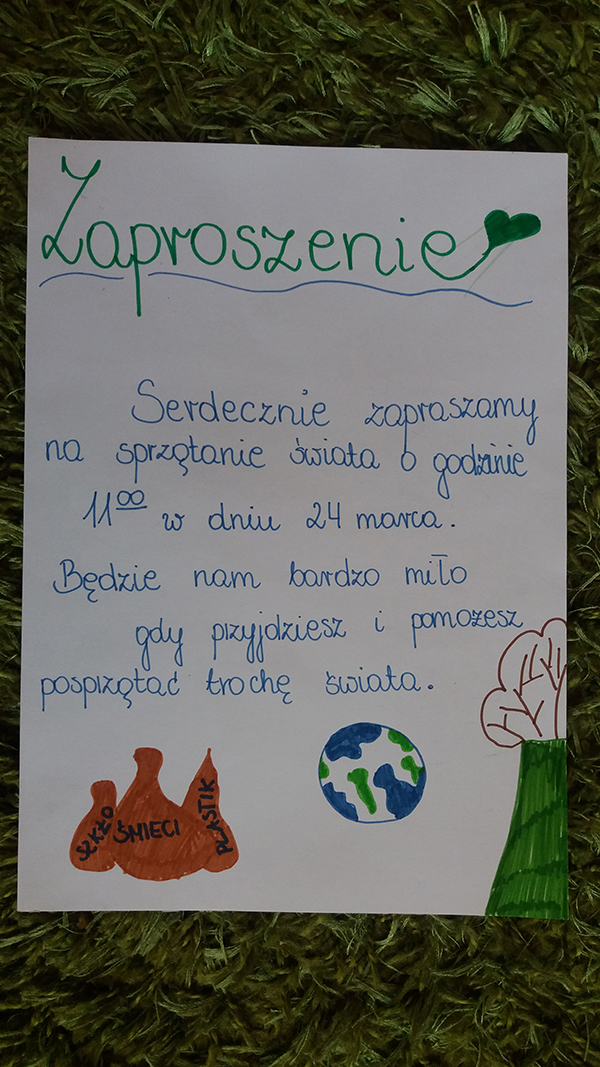 Zaproszenie
Serdecznie zapraszamy
na sprzątanie świata o godzinie
11⁰⁰ w dniu 24 marca.
Będzie nam bardzo miło
gdy przyjdziesz i pomożesz
posprzątać trochę świata.
SZKŁO
ŚMIECI
PLASTIK